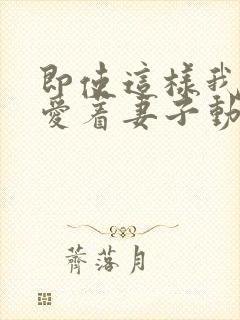 即使這樣我
愛着妻子動
薺落月